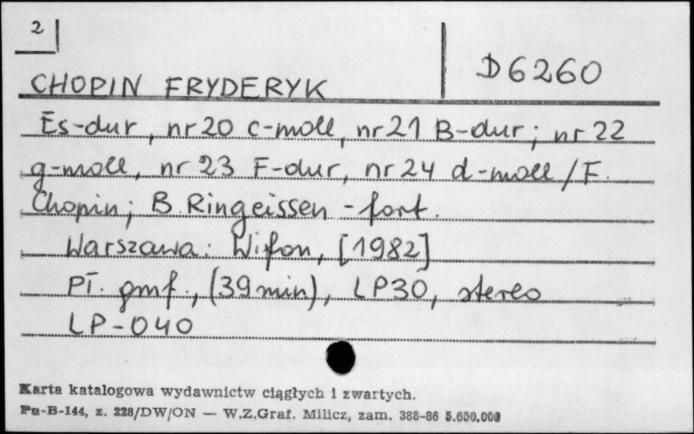 2
CHOPIN FRYDERYK
D6260
Es-dur, nr 20 c-moll, nr 21 B-dur; nr 22
g-moll, nr 23 F-dur, nr 24 d-moll / F.
Chopin; B. Ringeissen - fort.
Warszawa: Wifon, [1982]
Pł. gmf., (39 min), LP30, stereo
LP-040
Karta katalogowa wydawnictw ciągłych i zwartych.
Pu-B-144, z. 228/DW/ON — W.Z.Graf. Milicz, zam. 388-86 5.650.000